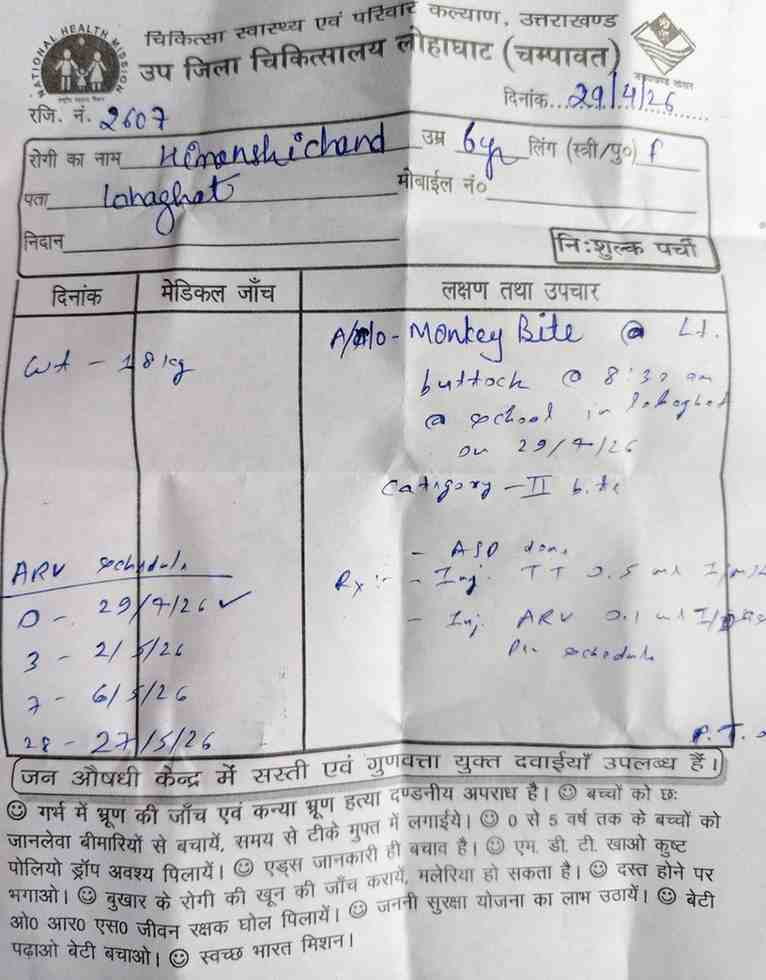 NATIONAL HEALTH MISSION
राष्ट्रीय स्वास्थ्य मिशन
चिकित्सा स्वास्थ्य एवं परिवार कल्याण, उत्तराखण्ड
उप जिला चिकित्सालय लोहाघाट (चम्पावत)
रजि. नं. 2607
दिनांक...29/4/26
रोगी का नाम Himanshi chand उम्र 6yr लिंग (स्त्री/पु०) F
पता Lohaghat मोबाईल नं०
निदान
नि:शुल्क पर्ची
दिनांक मेडिकल जाँच लक्षण तथा उपचार
Wt - 18 kg
A/H/O - Monkey Bite @ Lt.
buttock @ 8:30 am
@ school in Lohaghat
on 29/4/26
Category - II bite
- ASD done
Rx :- - Inj. TT 0.5 ml I/m
- Inj. ARV 0.1 ml
Per schedule
ARV schedule
0 - 29/4/26 ✓
3 - 2/5/26
7 - 6/5/26
28 - 27/5/26
P.T.O
जन औषधी केन्द्र में सस्ती एवं गुणवत्ता युक्त दवाईयाँ उपलब्ध हैं।
☺ गर्भ में भ्रूण की जाँच एवं कन्या भ्रूण हत्या दण्डनीय अपराध है। ☺ बच्चों को छः
जानलेवा बीमारियों से बचायें, समय से टीके मुफ्त में लगाईये। ☺ 0 से 5 वर्ष तक के बच्चों को
पोलियो ड्रॉप अवश्य पिलायें। ☺ एड्स जानकारी ही बचाव है। ☺ एम. डी. टी. खाओ कुष्ट
भगाओ। ☺ बुखार के रोगी की खून की जाँच करायें, मलेरिया हो सकता है। ☺ दस्त होने पर
ओ० आर० एस० जीवन रक्षक घोल पिलायें। ☺ जननी सुरक्षा योजना का लाभ उठायें। ☺ बेटी
पढ़ाओ बेटी बचाओ। ☺ स्वच्छ भारत मिशन।